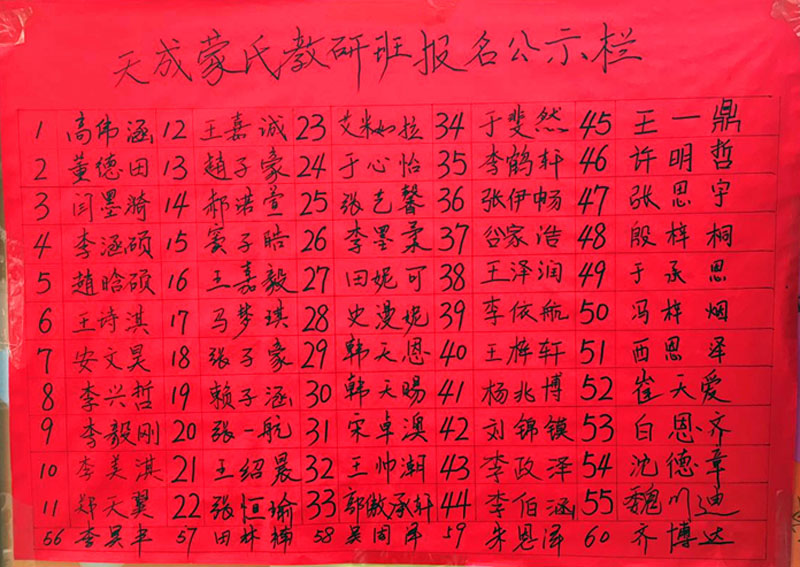 天成蒙氏教研班报名公示栏
1 高伟涵 12 王嘉诚 23 艾米如拉 34 于斐然 45 王一鼎
2 董德田 13 趙子豪 24 于心怡 35 李鹤轩 46 许明哲
3 闫墨漪 14 郝浩萱 25 张艺馨 36 张伊畅 47 张思宇
4 李涵硕 15 窦子皓 26 李墨柔 37 谷家浩 48 殷梓桐
5 趙晗硕 16 王嘉毅 27 田妮可 38 王泽润 49 于承思
6 王诗淇 17 马梦琪 28 史漫妮 39 李依航 50 冯梓烟
7 安文昊 18 张子豪 29 韩天恩 40 王梓轩 51 西思泽
8 李兴哲 19 赖子涵 30 韩天赐 41 杨兆博 52 崔天爱
9 李毅刚 20 张一航 31 宋卓澳 42 刘锦镆 53 白恩齐
10 李美淇 21 王绍晨 32 王帅潮 43 李政泽 54 沈德章
11 郑天翼 22 张恒瑜 33 郭傲承轩 44 李伯涵 55 魏川迪
56 李昊丰 57 田林楠 58 吴周泽 59 朱恩泽 60 齐博达